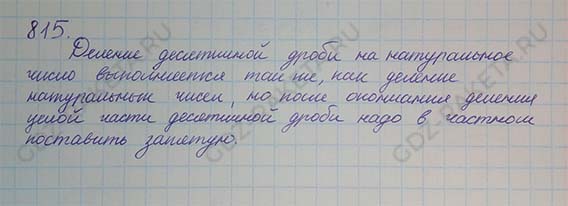 815.
Деление десятичной дроби на натуральное
число выполняется так же, как деление
натуральных чисел, но после окончания деления
целой части десятичной дроби надо в частном
поставить запятую.